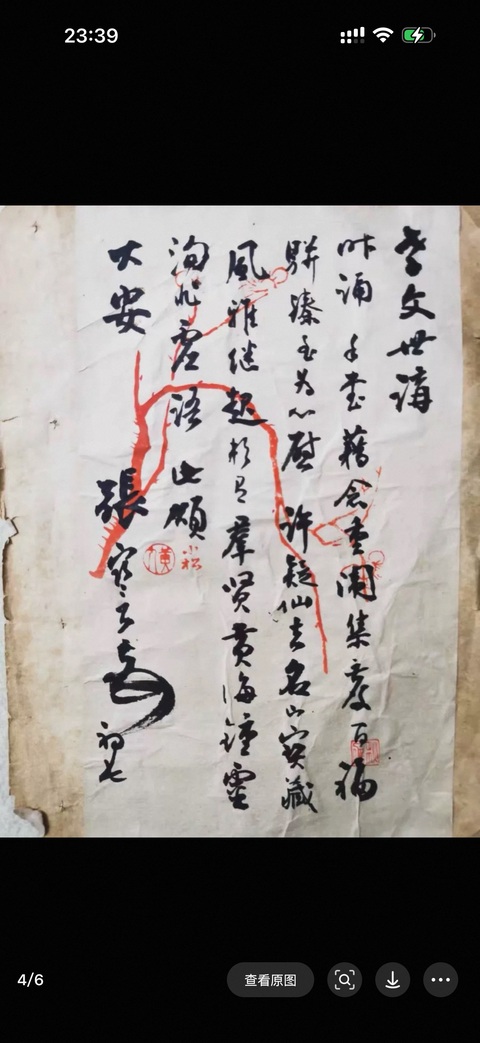 23:39
孝文世講
昨誦手書藉念重闈集慶百福
駢臻至為心慰許疑仙去名山寶藏
風雅继起於有羣賢黄海鐘靈
洵非虚語此頌
大安
張寒
初七
小松
4/6
查看原图